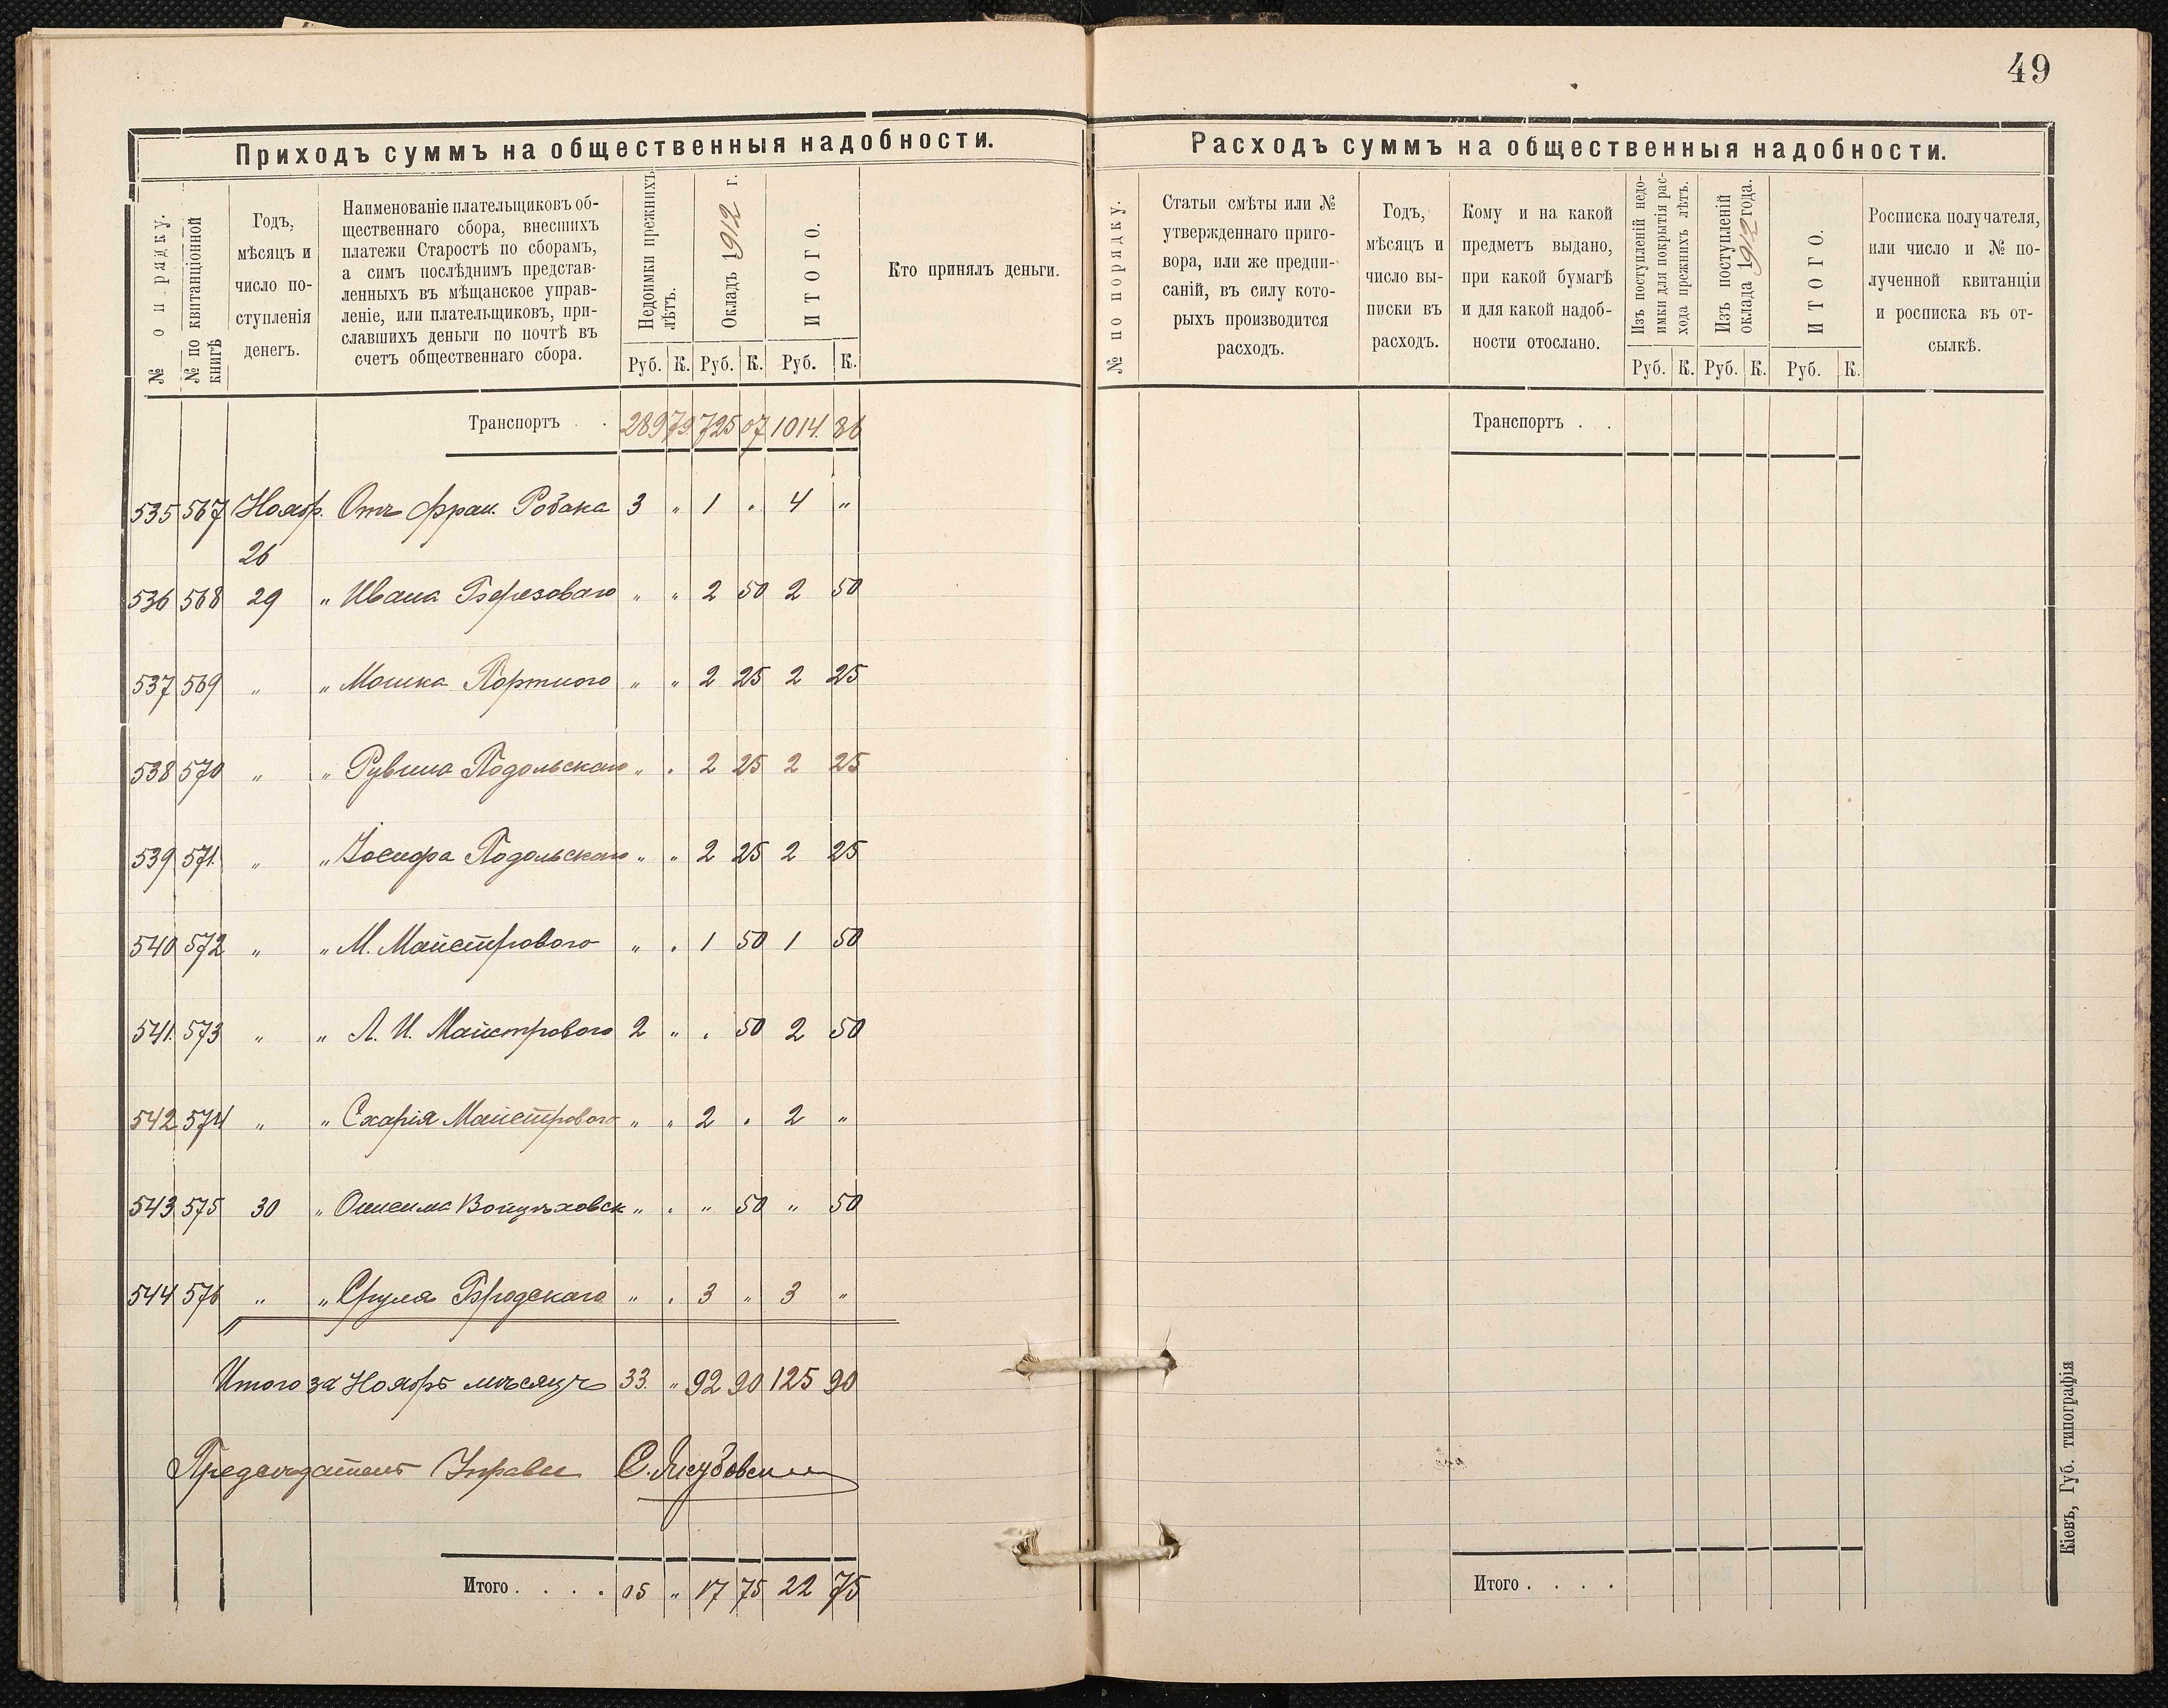 49
Приходъ суммъ на общественныя надобности.
№ по порядку.
№ по квитанціонной книгѣ
Годъ,
мѣсяцъ и
число по-
ступленія
денегъ.
Наименованіе плательщиковъ об-
щественнаго сбора, внесшихъ
платежи Старостѣ по сборамъ,
а симъ послѣднимъ представ-
ленныхъ въ мѣщанское управ-
леніе, или плательщиковъ, при-
славшихъ деньги по почтѣ въ
счетъ общественнаго сбора.
Недоимки прежнихъ лѣтъ.
Окладъ 1912 г.
ИТОГО.
Кто принялъ деньги.
Руб. К. Руб. К. Руб. К.
Транспортъ . . 289 79 725 07 1014 86
535 567 Ноябр. 26 Отъ Фран. Робака 3 " 1 " 4 "
536 568 29 " Ивана Березоваго " " 2 50 2 50
537 569 " " Мошка Портного " " 2 25 2 25
538 570 " " Рувина Подольскаго " " 2 25 2 25
539 571 " " Іосифа Подольскаго " " 2 25 2 25
540 572 " " М. Майстрового " " 1 50 1 50
541 573 " " Л. И. Майстрового 2 " " 50 2 50
542 574 " " Схарія Майстрового " " 2 " 2 "
543 575 30 " Онисима Войцѣховск " " " 50 " 50
544 576 " " Сруля Бродскаго " " 3 " 3 "
Итого за Ноябрь мѣсяцъ 33 " 92 90 125 90
Предсѣдатель Управы
Итого . . . . 05 " 17 75 22 75
Расходъ суммъ на общественныя надобности.
№ по порядку.
Статьи смѣты или №
утвержденнаго приго-
вора, или же предпи-
саній, въ силу кото-
рыхъ производится
расходъ.
Годъ,
мѣсяцъ и
число вы-
писки въ
расходъ.
Кому и на какой
предметъ выдано,
при какой бумагѣ
и для какой надоб-
ности отослано.
Изъ поступленій недо-
имки для покрытія рас-
хода прежнихъ лѣтъ.
Изъ поступленій
оклада 1912 года.
ИТОГО.
Росписка получателя,
или число и № по-
лученной квитанціи
и росписка въ от-
сылкѣ.
Руб. К. Руб. К. Руб. К.
Транспортъ . .
Итого . . . .
Кіевъ, Губ. типографія